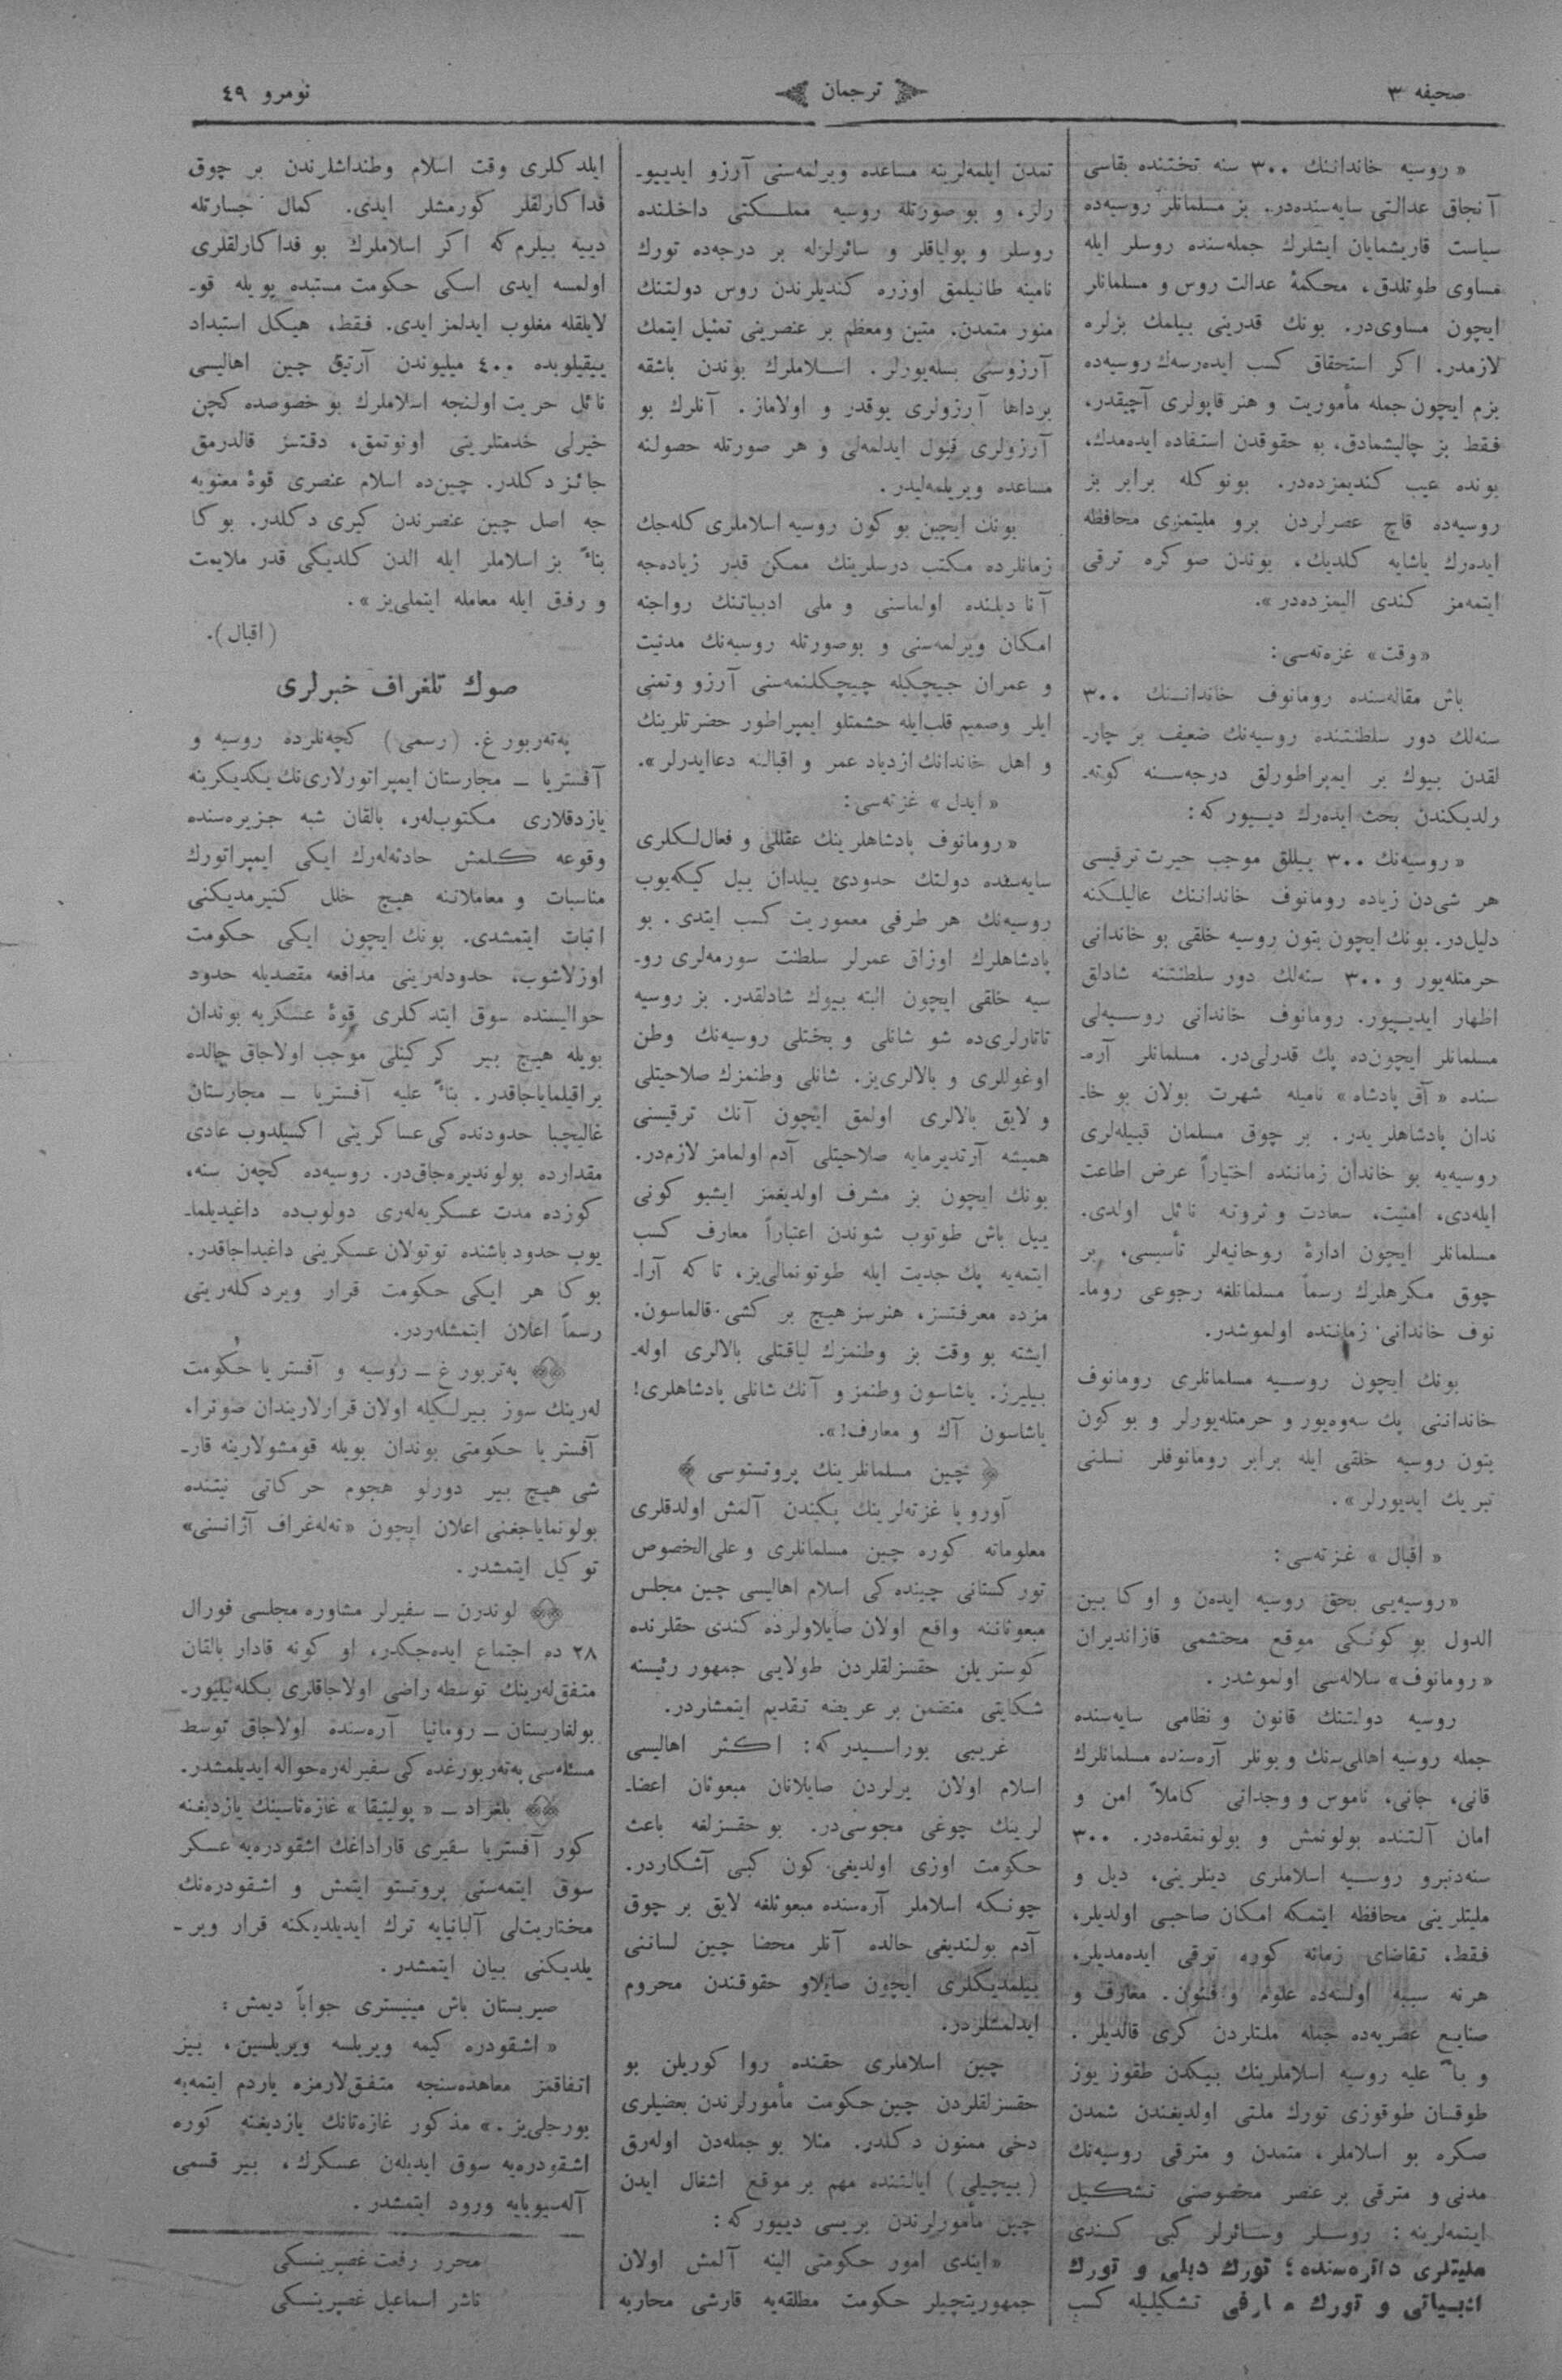 صحيفه ٣
ترجمان
نومرو ٤٩
« روسيه خانداننك ٣٠٠ سنه تختنده بقاسى
آنجاق عدالتى سايه‌سنده‌در. بز مسلمانلر روسيه‌ده
سياست قاريشمايان ايشلرك جمله‌سنده روسلر ايله
مساوى طوتلدق، محكمهٔ عدالت روس و مسلمانلر
ايچون مساوى‌در. بونك قدرينى بيلمك بزلره
لازمدر. اكر استحقاق كسب ايده‌رسه‌ك روسيه‌ده
بزم ايچون جمله مأموريت و هنر قاپولرى آچيقدر،
فقط بز چاليشمادق، بو حقوقدن استفاده ايده‌مدك،
بونده عيب كنديمزده‌در. بونوكله برابر بز
روسيه‌ده قاچ عصرلردن برو مليتمزى محافظه
ايده‌رك ياشايه كلديك، بوندن صوكره ترقى
ايتمه‌مز كندى اليمزده‌در».
«وقت» غزه‌ته‌سى:
باش مقاله‌سنده رومانوف خانداننك ٣٠٠
سنه‌لك دور سلطنتنده روسيه‌نك ضعيف بر چار-
لقدن بيوك بر ايمپراطورلق درجه‌سنه كوته-
رلديكندن بحث ايده‌رك ديیور كه:
« روسيه‌نك ٣٠٠ ييللق موجب حيرت ترقيسى
هر شى‌دن زياده رومانوف خانداننك عاليلكنه
دليل‌در. بونك ايچون بتون روسيه خلقى بو خاندانى
حرمتله‌يور و ٣٠٠ سنه‌لك دور سلطنتنه شادلق
اظهار ايديیور. رومانوف خاندانى روسيه‌لى
مسلمانلر ايچون‌ده پك قدرلى‌در. مسلمانلر آره-
سنده « آق پادشاه » ناميله شهرت بولان بو خا-
ندان پادشاهلريدر. بر چوق مسلمان قبيله‌لرى
روسيه‌يه بو خاندان زماننده اختياراً عرض اطاعت
ايله‌دى، امنيت، سعادت و ثروته نائل اولدى.
مسلمانلر ايچون ادارهٔ روحانيه‌لر تأسيسى، بر
چوق مكرهلرك رسماً مسلمانلغه رجوعى روما-
نوف خاندانى زماننده اولموشدر.
بونك ايچون روسيه مسلمانلرى رومانوف
خانداننى پك سه‌وه‌يور و حرمتله‌يورلر و بوكون
بتون روسيه خلقى ايله برابر رومانوفلر نسلنى
تبريك ايديورلر».
« اقبال » غزته‌سى:
«روسيه‌يى بحق روسيه ايدەن و اوكا بين
الدول بو كونكى موقع محتشمى قازانديران
«رومانوف» سلاله‌سى اولموشدر.
روسيه دولتنك قانون و نظامى سايه‌سنده
جمله روسيه اهالى‌سنك و بونلر آره‌سنده مسلمانلرك
قانى، جانى، ناموس و وجدانى كاملاً امن و
امان آلتنده بولونمش و بولونمقده‌در. ٣٠٠
سنه‌دنبرو روسيه اسلاملرى دينلرينى، ديل و
مليتلرينى محافظه ايتمكه امكان صاحبى اولديلر،
فقط، تقاضاى زمانه كوره ترقى ايده‌مديلر،
هرنه سببه اولسه‌ده علوم و فنون. معارف و
صنايع عصريه‌ده جمله ملتلردن كرى قالديلر.
و بناً عليه روسيه اسلاملرينك بيكدن طقوز يوز
طوقسان طوقوزى تورك ملتى اولديغندن شمدن
صكره بو اسلاملر، متمدن و مترقى روسيه‌نك
مدنى و مترقى بر عنصر مخصوصنى تشكيل
ايتمه‌لرينه: روسلر وسائرلر كبى كندى
مليتلرى دائره‌سنده؛ تورك ديلى و تورك
ادبياتى و تورك معارفى تشكيليله كسب
تمدن ايلمه‌لرينه مساعده ويرلمه‌سنى آرزو ايدييو-
رلر، و بو صورتله روسيه مملكتى داخلنده
روسلر و پولياقلر و سائرلرله بر درجه‌ده تورك
نامينه طانيلمق اوزره كنديلرندن روس دولتنك
منور متمدن، متين ومعظم بر عنصرينى تمثيل ايتمك
آرزوسنى بسله‌يورلر. اسلاملرك بوندن باشقه
برداها آرزولرى يوقدر و اولاماز. آنلرك بو
آرزولرى قبول ايدلمه‌لى و هر صورتله حصولنه
مساعده ويريلمه‌ليدر.
بونك ايچين بوكون روسيه اسلاملرى كله‌جك
زمانلرده مكتب درسلرينك ممكن قدر زياده‌جه
آنا ديلنده اولماسنى و ملى ادبياتنك رواجنه
امكان ويرلمه‌سنى و بوصورتله روسيه‌نك مدنيت
و عمران چيچكيله چيچكلنمه‌سنى آرزو وتمنى
ايلر وصميم قلب‌ايله حشمتلو ايمپراطور حضرتلرينك
و اهل خاندانك ازدياد عمر و اقبالنه دعاايدرلر».
« ايدل » غزته‌سى:
« رومانوف پادشاهلرينك عقللى و فعال‌لكلرى
سايه‌سنده دولتك حدودى ييلدان ييل كيكه‌يوب
روسيه‌نك هر طرفى معموريت كسب ايتدى. بو
پادشاهلرك اوزاق عمرلر سلطنت سورمه‌لرى رو-
سيه خلقى ايچون البته بيوك شادلقدر. بز روسيه
تاتارلرى‌ده شو شانلى و بختلى روسيه‌نك وطن
اوغوللرى و بالالرى‌يز. شانلى وطنمزك صلاحيتلى
و لايق بالالرى اولمق ايچون آنك ترقيسنى
هميشه آرتديرمايه صلاحيتلى آدم اولمامز لازم‌در.
بونك ايچون بز مشرف اولديغمز ايشبو كونى
ييل باش طوتوب شوندن اعتباراً معارف كسب
ايتمه‌يه پك جديت ايله طوتونمالى‌يز، تا كه آرا-
مزده معرفتسز، هنرسز هيچ بر كشى قالماسون.
ايشته بو وقت بز وطنمزك لياقتلى بالالرى اوله-
بيليرز. ياشاسون وطنمز و آنك شانلى پادشاهلرى!
ياشاسون آك و معارف!».
چين مسلمانلرينك پروتستوسى
آوروپا غزته‌لرينك پكيندن آلمش اولدقلرى
معلوماته كوره چين مسلمانلرى و على‌الخصوص
توركستانى چينده كى اسلام اهاليسى چين مجلس
مبعوثاننه واقع اولان صايلاولرده كندى حقلرنده
كوستريلن حقسزلقلردن طولايى جمهور رئيسنه
شكايتى متضمن بر عريضه تقديم ايتمشلردر.
غريبى بوراسيدر كه: اكثر اهاليسى
اسلام اولان يرلردن صايلانان مبعوثان اعضا-
لرينك چوغى مجوسى‌در. بو حقسزلغه باعث
حكومت اوزى اولديغى كون كبى آشكاردر.
چونكه اسلاملر آره‌سنده مبعوثلغه لايق بر چوق
آدم بولنديغى حالده آنلر محضا چين لساننى
بيلمديكلرى ايچون صايلاو حقوقندن محروم
ايدلمشلردر.
چين اسلاملرى حقنده روا كوريلن بو
حقسزلقلردن چين حكومت مأمورلرندن بعضيلرى
دخى ممنون دكلدر. مثلا بو جمله‌دن اوله‌رق
(بيچيلى) ايالتنده مهم بر موقع اشغال ايدن
چين مأمورلرندن بريسى دييور كه:
« ايندى امور حكومتى الينه آلمش اولان
جمهوريتچيلر حكومت مطلقه‌يه قارشى محاربه
ايلدكلرى وقت اسلام وطنداشلرندن بر چوق
فداكارلقلر كورمشلر ايدى. كمال جسارتله
دييه بيلرم كه اكر اسلاملرك بو فداكارلقلرى
اولمسه ايدى اسكى حكومت مستبده بويله قو-
لايلقله مغلوب ايدلمز ايدى. فقط، هيكل استبداد
ييقيلوبده ٤٠٠ ميليوندن آرتيق چين اهاليسى
نائل حريت اولنجه اسلاملرك بو خصوصده كچن
خيرلى خدمتلرينى اونوتمق، دقتسز قالدرمق
جائز دكلدر. چين‌ده اسلام عنصرى قوهٔ معنويه
جه اصل چين عنصرندن كيرى دكلدر. بوكا
بناءً بز اسلاملر ايله الدن كلديكى قدر ملايمت
و رفق ايله معامله ايتملى‌يز».
(اقبال).
صوك تلغراف خبرلرى
په‌ته‌ربورغ. (رسمى) كچه‌نلرده روسيه و
آفستريا – مجارستان ايمپراتورلارى‌نك يكديكرينه
يازدقلارى مكتوب‌لەر، بالقان شبه جزيره‌سنده
وقوعه كلمش حادثه‌لەرك ايكى ايمپراتورك
مناسبات و معاملاتنه هيچ خلل كتيرمديكنى
اثبات ايتمشدى. بونك ايچون ايكى حكومت
اوزلاشوب، حدودلەرينى مدافعه مقصديله حدود
حواليسنده سوق ايتدكلرى قوهٔ عسكريه بوندان
بويله هيچ بير كركينلى موجب اولاجاق حالده
براقيلماياجاقدر. بناءً عليه آفستريا – مجارستان
غاليچيا حدودنده كى عساكرينى اكسيلدوب عادى
مقدارده بولونديره‌جاق‌در. روسيه‌ده كچەن سنه،
كوزده مدت عسكريه‌لەرى دولوب‌ده داغيديلما-
يوب حدود باشنده توتولان عسكرينى داغيداجاقدر.
بوكا هر ايكى حكومت قرار ويردكلەرينى
رسماً اعلان ايتمشلەردر.
په‌تربورغ – روسيه و آفستريا حكومت
لەرينك سوز بيرلكيله اولان قرارلاريندان صونرا،
آفستريا حكومتى بوندان بويله قومشولارينه قار-
شى هيچ بير دورلو هجوم حركاتى نيتنده
بولونماياجغنى اعلان ايچون «تەلەغراف آژانسنى»
توكيل ايتمشدر.
لوندرن – سفيرلر مشاوره مجلسى فورال
٢٨ ده اجتماع ايده‌جكدر، او كونه قادار بالقان
متفق‌لەرينك توسطه راضى اولاجاقلرى بكلەنيليور-
بولغارستان – رومانيا آره‌سنده اولاجاق توسط
مسئله‌سى په‌ته‌ربورغده كى سفيرلەره حواله ايديلمشدر.
بلغراد – « پوليتيقا » غازه‌تاسينك يازديغنه
كور آفستريا سفيرى قاراداغك اشقودره‌يه عسكر
سوق ايتمه‌سنى پروتستو ايتمش و اشقودره‌نك
مختاريت‌لى آلبانيايه ترك ايديلديكنه قرار وير-
يلديكنى بيان ايتمشدر.
صربستان باش مينيسترى جواباً ديمش:
« اشقودره كيمه ويريلسه ويريلسين، بيز
اتفاقمز معاهده‌سنجه متفق‌لارمزه ياردم ايتمه‌يه
بورجلى‌يز.» مذكور غازه‌تانك يازديغنه كوره
اشقودره‌يه سوق ايديلەن عسكرك، بير قسمى
آله‌سيويايه ورود ايتمشدر.
محرر رفعت غصپرينسكى
ناشر اسماعيل غصپرينسكى